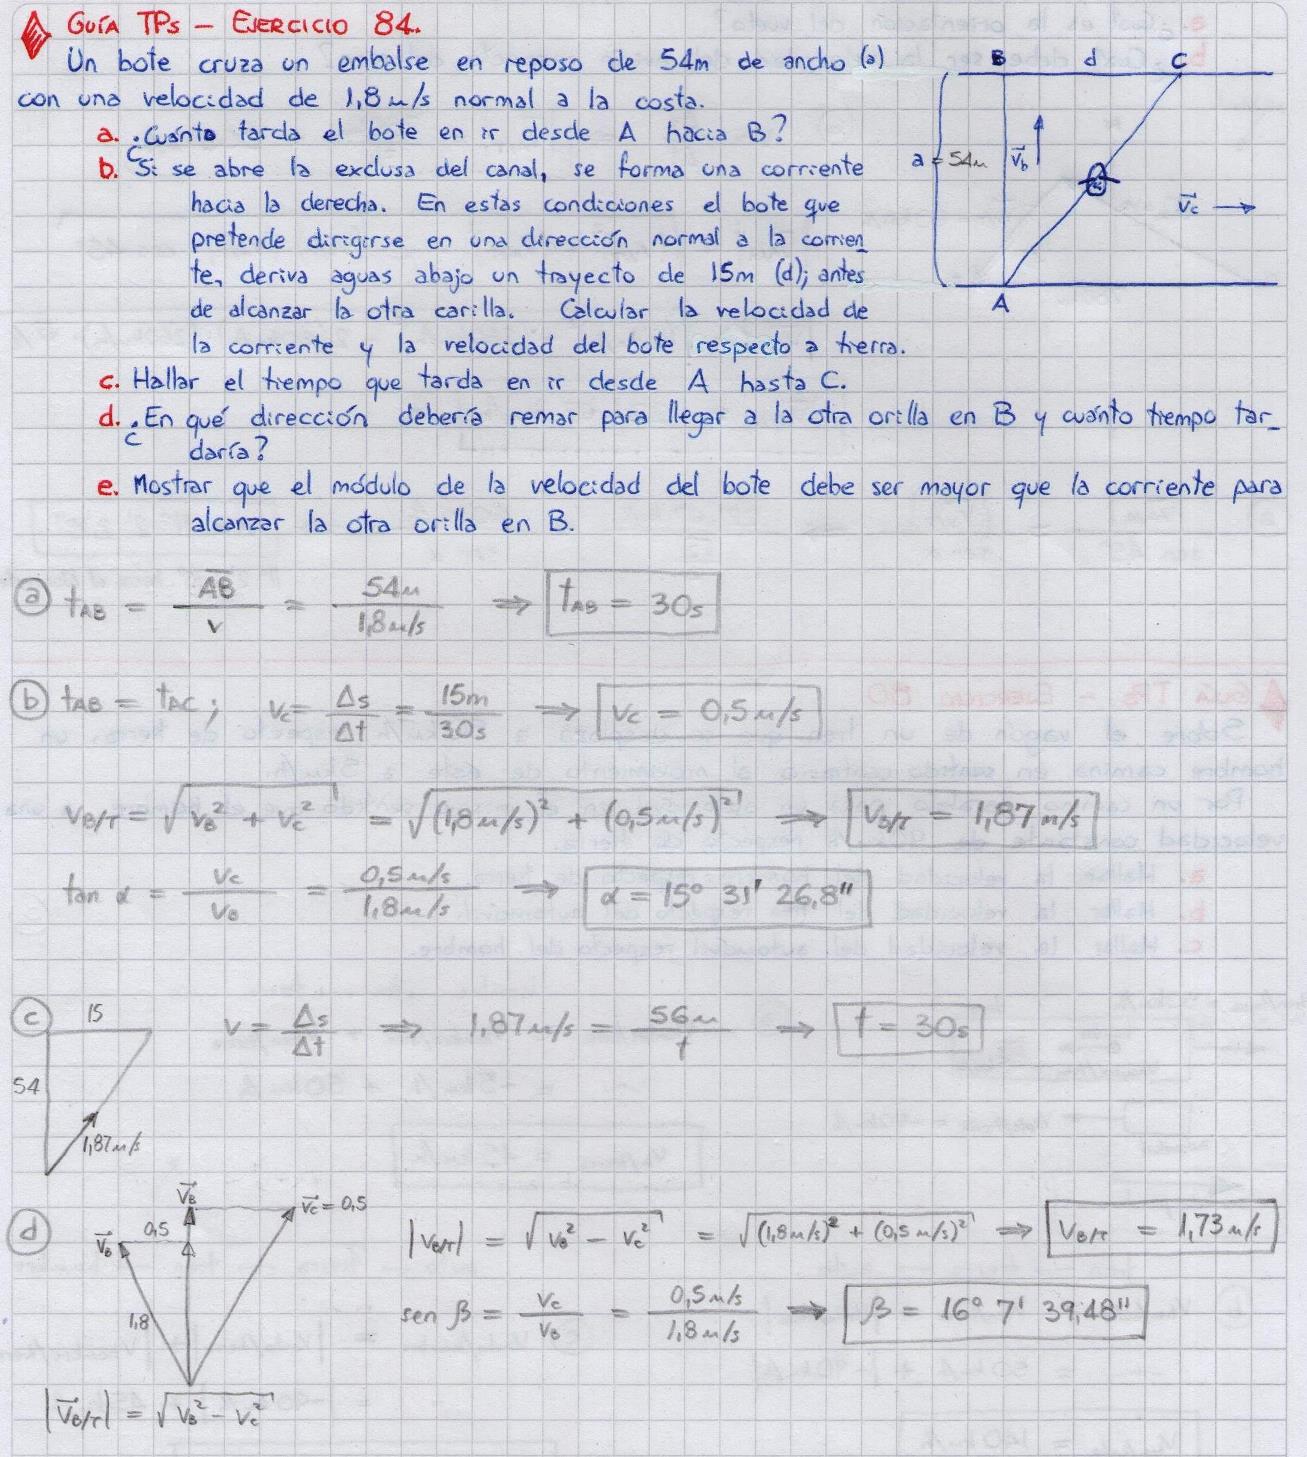 GUÍA TPs – EJERCICIO 84.
Un bote cruza un embalse en reposo de 54m de ancho (a)
con una velocidad de 1,8 m/s normal a la costa.
a. ¿Cuánto tarda el bote en ir desde A hacia B?
b. Si se abre la exclusa del canal, se forma una corriente
hacia la derecha. En estas condiciones el bote que
pretende dirigirse en una dirección normal a la corrien_
te, deriva aguas abajo un trayecto de 15m (d); antes
de alcanzar la otra carilla. Calcular la velocidad de
la corriente y la velocidad del bote respecto a tierra.
c. Hallar el tiempo que tarda en ir desde A hasta C.
d. ¿En qué dirección debería remar para llegar a la otra orilla en B y cuánto tiempo tar_
daría?
e. Mostrar que el módulo de la velocidad del bote debe ser mayor que la corriente para
alcanzar la otra orilla en B.
B d C
a = 54m
V⃗b
V⃗c →
A
ⓐ tAB = AB̅ / v = 54m / 1,8m/s ⇒ tAB = 30s
ⓑ tAB = tAC; vc = Δs/Δt = 15m/30s ⇒ vc = 0,5 m/s
vB/T = √(vB² + vc²) = √((1,8m/s)² + (0,5m/s)²) ⇒ vB/T = 1,87 m/s
tan α = vc / vB = 0,5m/s / 1,8m/s ⇒ α = 15° 31' 26,8"
ⓒ 15
54
1,87m/s
v = Δs/Δt ⇒ 1,87m/s = 56m / t ⇒ t = 30s
ⓓ V⃗B
V⃗B 0,5 V⃗c = 0,5
1,8
|V⃗B/T| = √(VB² - Vc²)
|VB/T| = √(VB² - Vc²) = √((1,8m/s)² + (0,5m/s)²) ⇒ VB/T = 1,73 m/s
sen β = Vc / VB = 0,5m/s / 1,8m/s ⇒ β = 16° 7' 39,48"